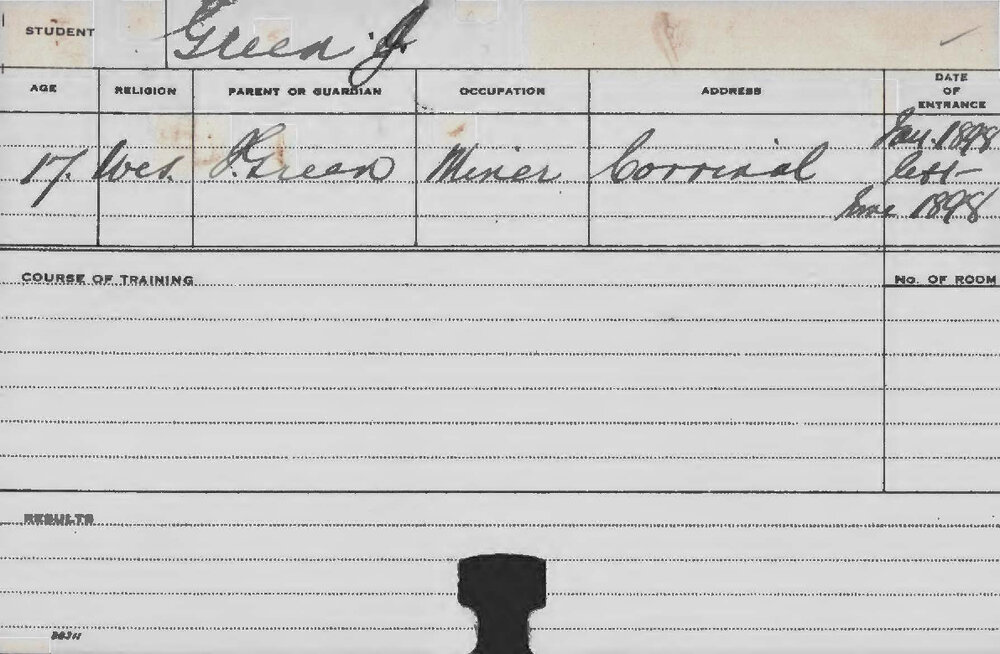 STUDENT Green J.
AGE RELIGION PARENT OR GUARDIAN OCCUPATION ADDRESS DATE OF ENTRANCE
17. Wes. J. Green Miner Corrinal Jan. 1898
left
June 1898
COURSE OF TRAINING No. OF ROOM
RESULTS